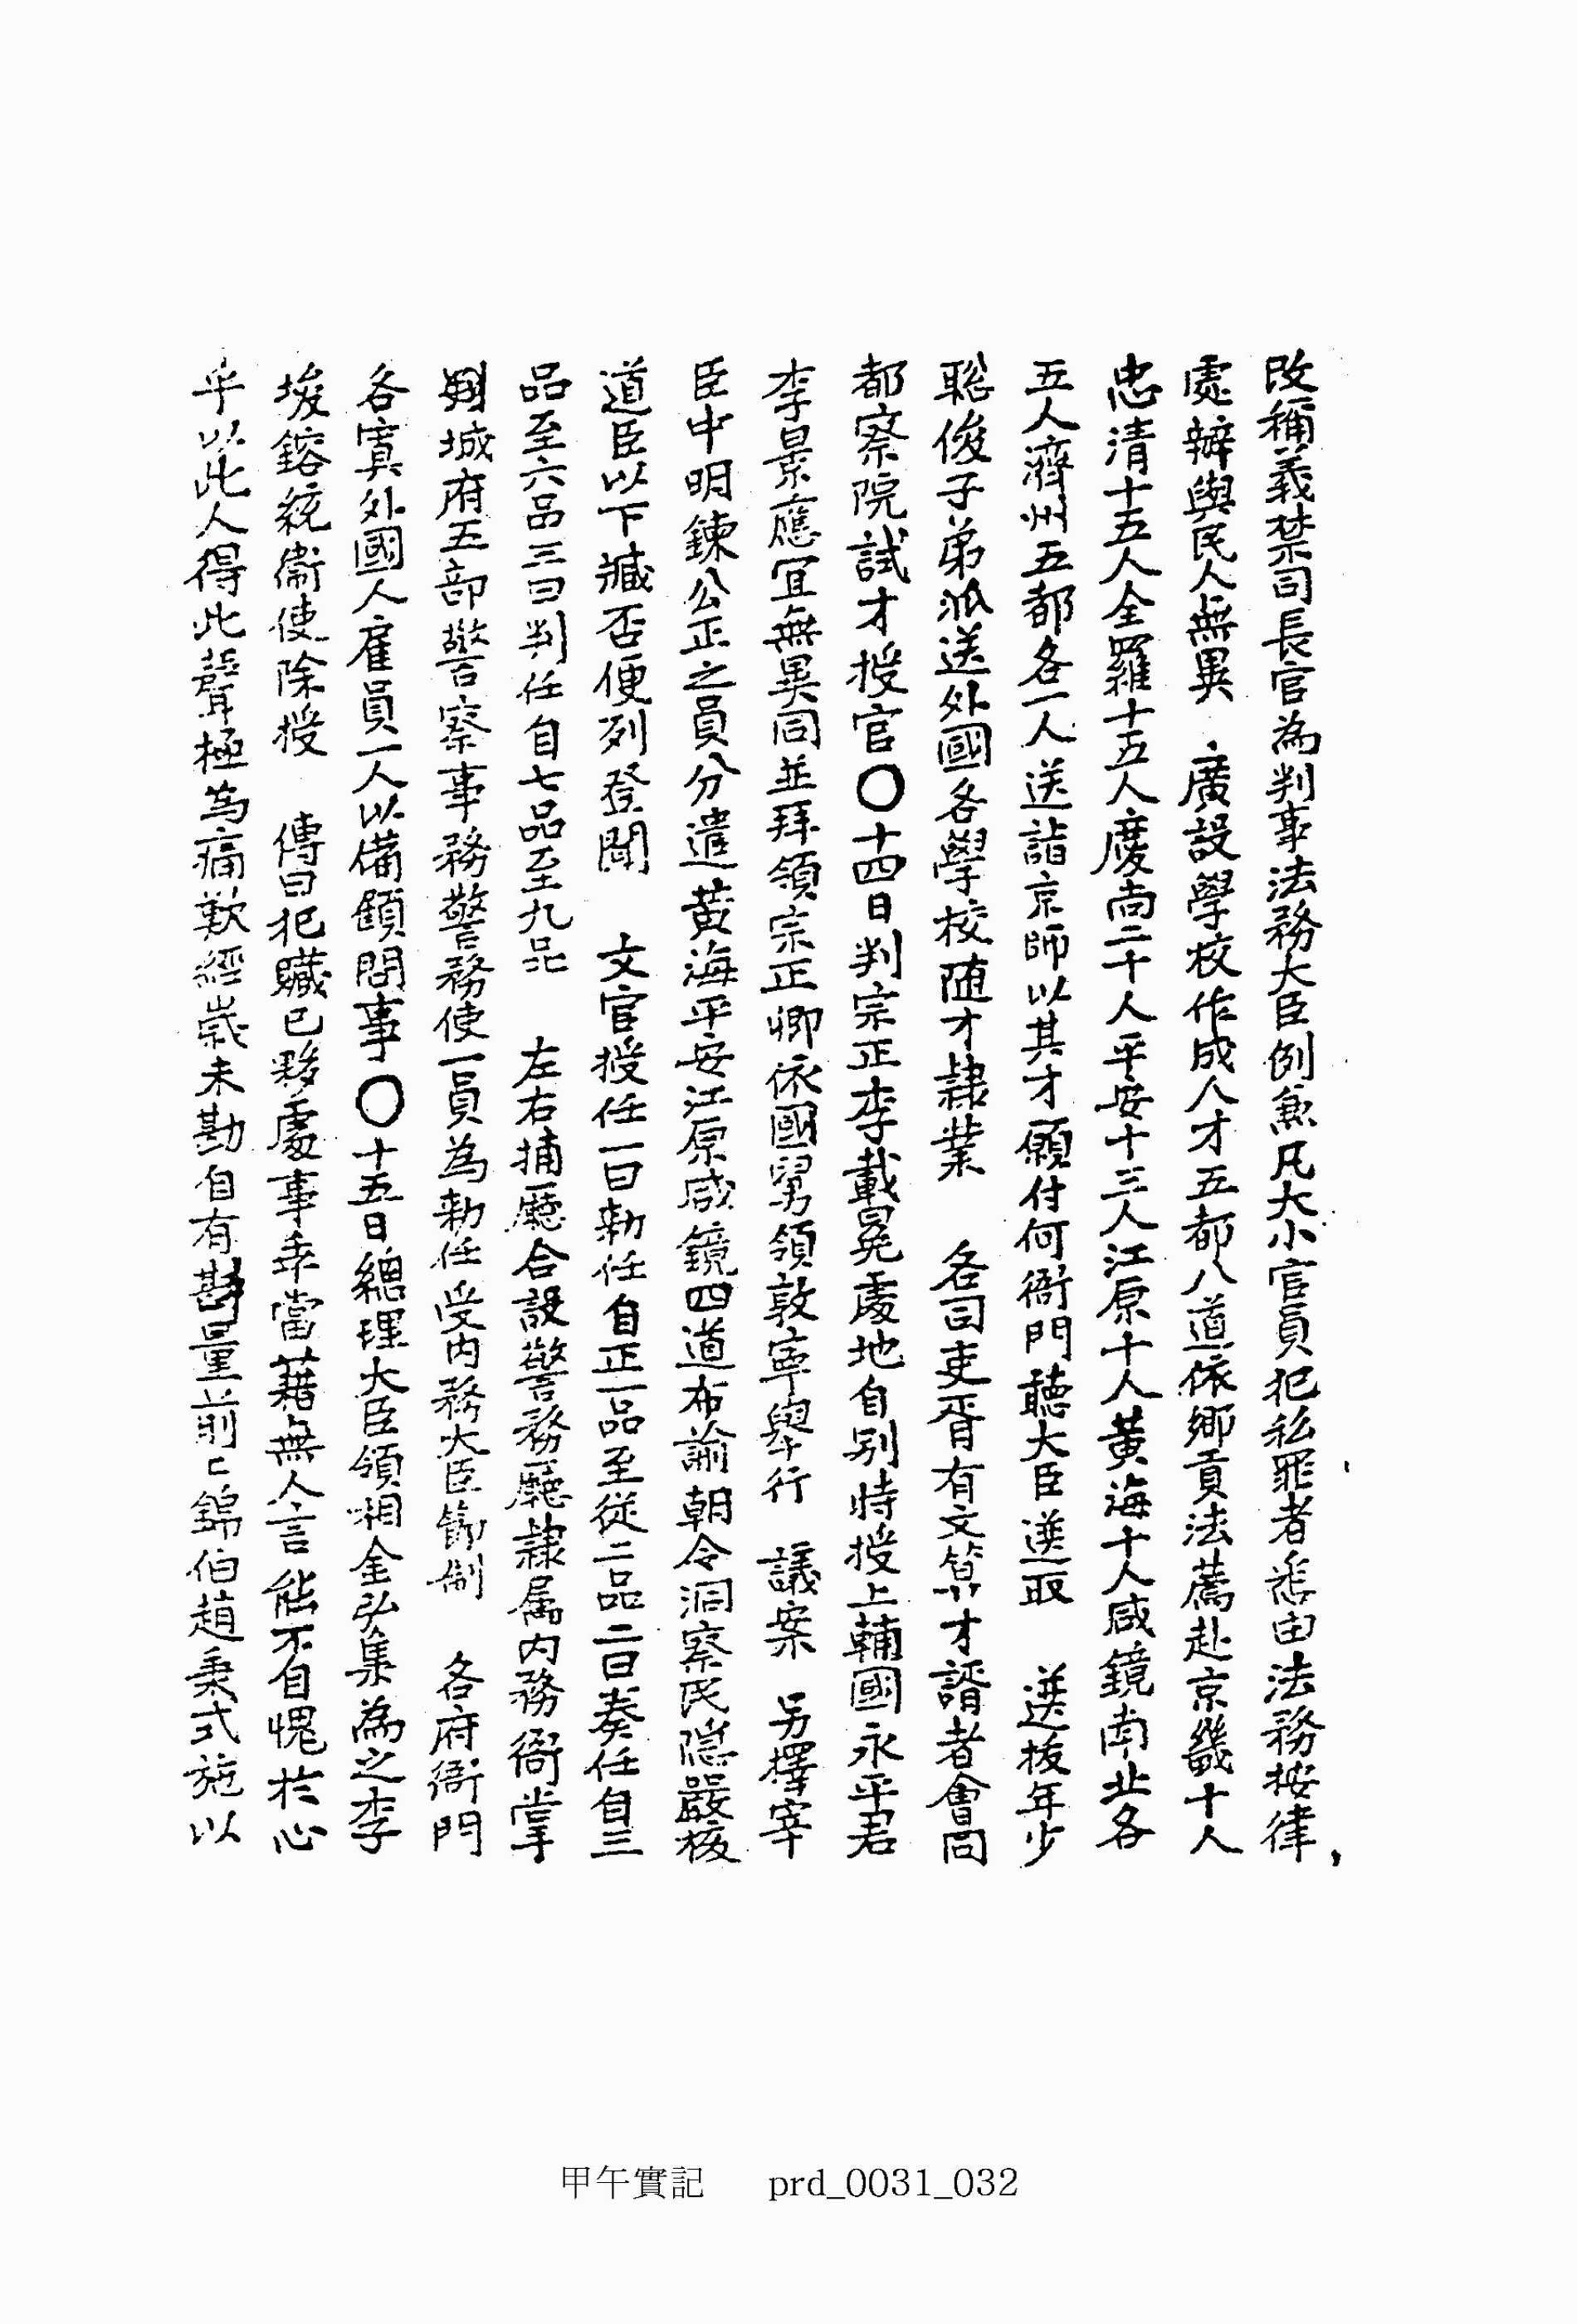 改稱義禁司長官為判事法務大臣例兼凡大小官員犯私罪者悉由法務按律
處辦與民人無異 廣設學校作成人才五都八道依鄉貢法薦赴京畿十人
忠清十五人全羅十五人慶尚二十人平安十三人江原十人黃海十人咸鏡南北各
五人濟州五都各一人送詣京師以其才願付何衙門聽大臣選取 選拔年少
聡俊子弟派送外國各學校随才隷業 各司吏胥有文筭才諝者會同
都察院試才授官〇十四日判宗正李載冕處地自別特授上輔國永平君
李景應宜無異同並拜領宗正卿依國舅領敦寧舉行 議案 另擇宰
臣中明鍊公正之員分遣黃海平安江原咸鏡四道布諭朝令洞察民隱嚴核
道臣以下臧否便列登聞 文官授任一曰勅任自正一品至從二品二曰奏任自三
品至六品三曰判任自七品至九品 左右捕廳合設警務廳隷属内務衙掌
城府五部警察事務警務使一員為勅任受内務大臣節制 各府衙門
各寘外國人雇員一人以備顧問事〇十五日總理大臣領相金弘集為之李
埈鎔統衛使除授 傳曰犯贓已夥處事乖當藉無人言能不自愧於心
乎以此人得此聲極為痛歎經歲未勘自有斟量前錦伯趙秉式施以
甲午實記 prd_0031_032